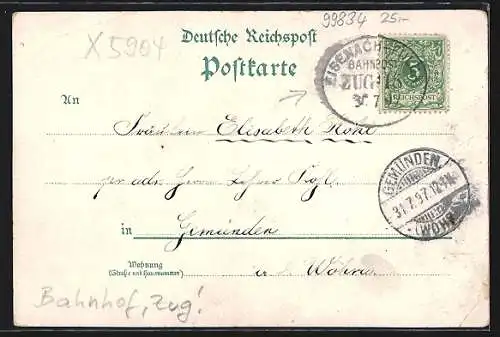 99834 25.-
X 5904
Deutsche Reichspost
Postkarte
EISENACH
BAHNPOST
ZUG
30 7 9
5
REICHSPOST
An
Fräulein Elisabeth
per adr. Herrn Lehrer
GEMÜNDEN
31.7.97.12-1N.
(WOHRA)
in Gemünden
Wohnung
(Straße und Hausnummer)
a. d. Wohra
Bahnhof, Zug!